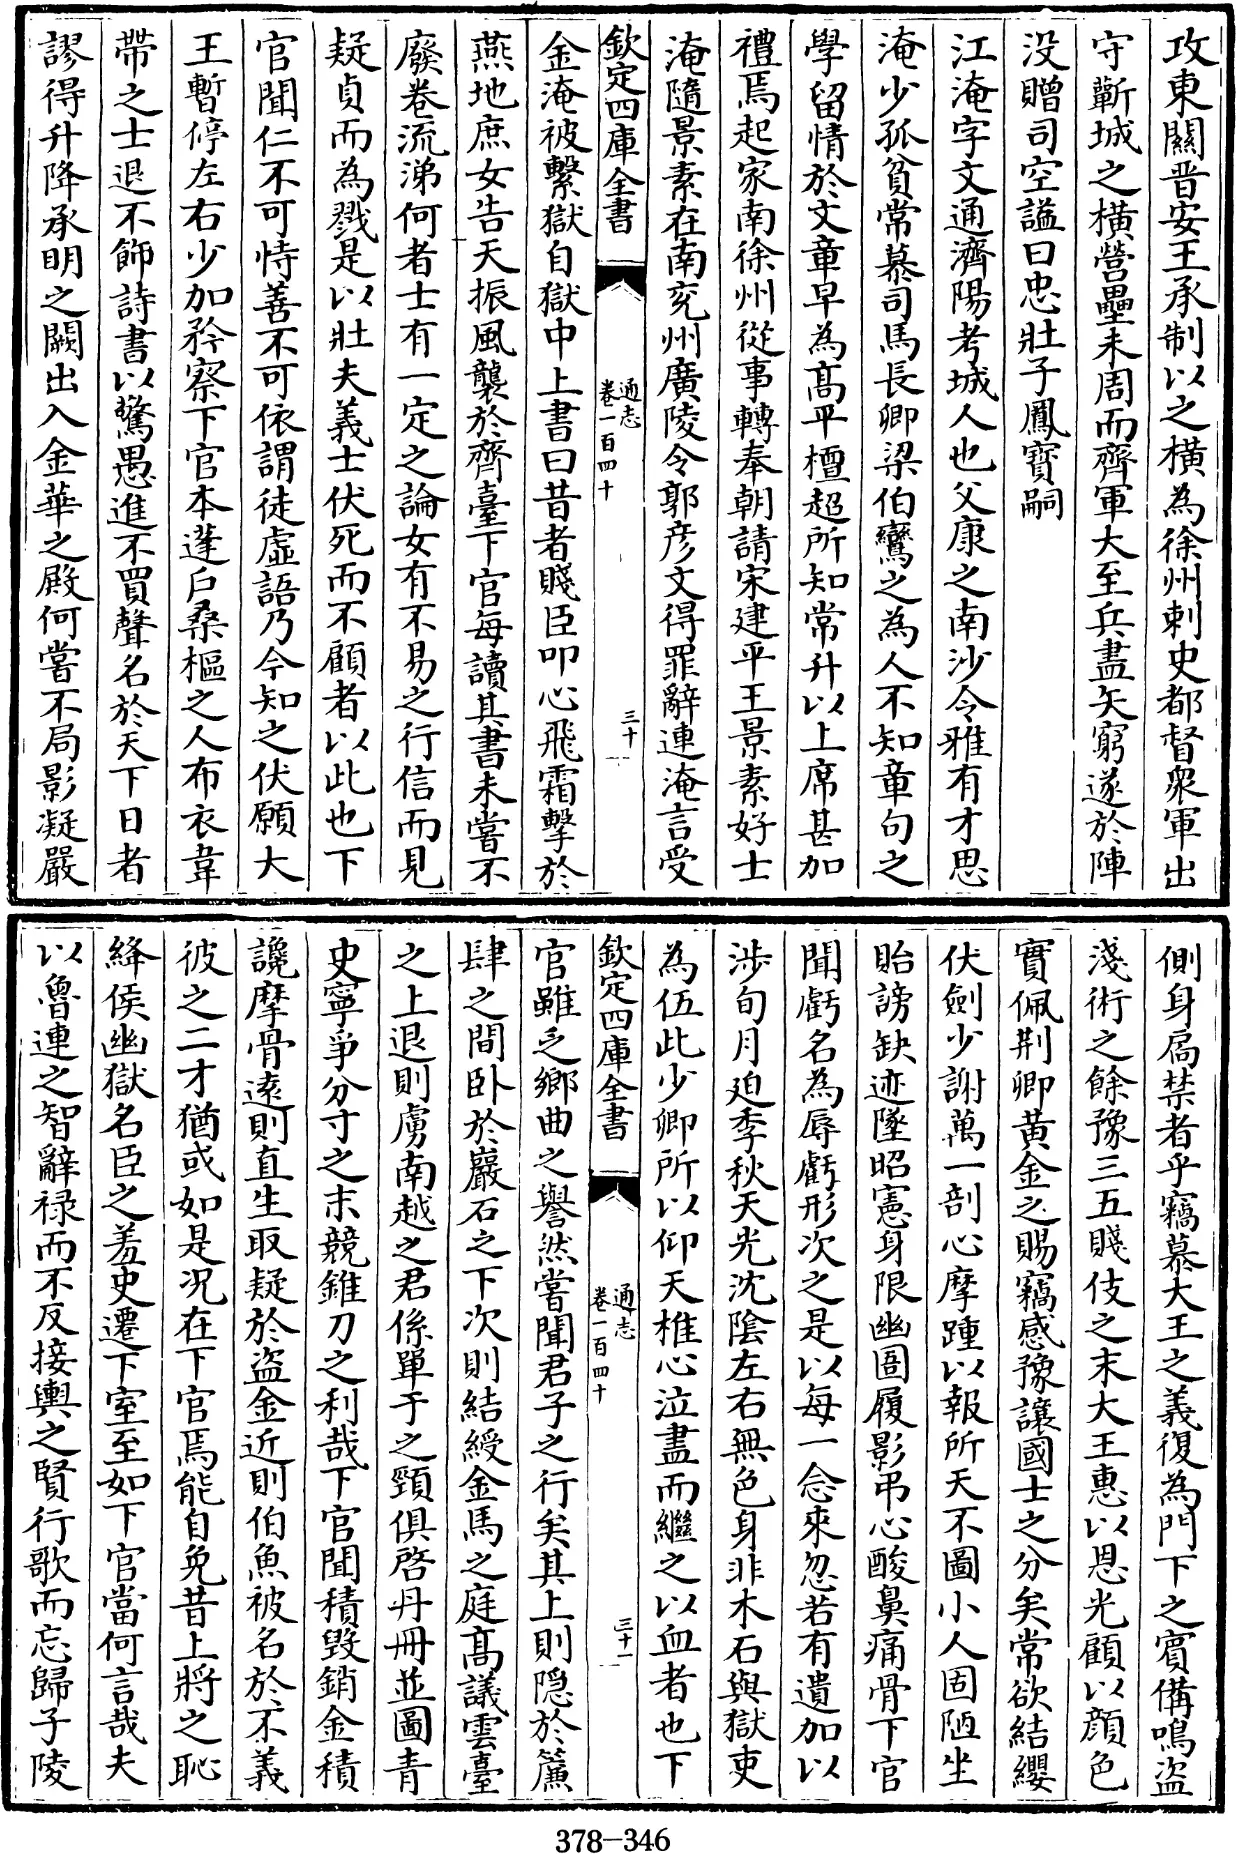 攻東關晋安王承制以之横為徐州刺史都督衆軍出
守蘄城之横營壘未周而齊軍大至兵盡矢窮遂於陣
没贈司空謚曰忠壯子鳳寳嗣
江淹字文通濟陽考城人也父康之南沙令雅有才思
淹少孤貧常慕司馬長卿梁伯鸞之為人不知章句之
學留情於文章早為髙平檀超所知常升以上席甚加
禮焉起家南徐州從事轉奉朝請宋建平王景素好士
淹隨景素在南兖州廣陵令郭彦文得罪辭連淹言受
欽定四庫全書
通志
卷一百四十
三十
金淹被繫獄自獄中上書曰昔者賤臣叩心飛霜擊於
燕地庶女告天振風襲於齊臺下官每讀其書未嘗不
廢卷流涕何者士有一定之論女有不易之行信而見
疑貞而為戮是以壯夫義士伏死而不顧者以此也下
官聞仁不可恃善不可依謂徒虛語乃今知之伏願大
王暫停左右少加矜察下官本蓬户桑樞之人布衣韋
帶之士退不飾詩書以驚愚進不買聲名於天下日者
謬得升降承明之闕出入金華之殿何嘗不局影凝嚴
側身扃禁者乎竊慕大王之義復為門下之賓備鳴盗
淺術之餘豫三五賤伎之末大王惠以恩光顧以顔色
實佩荆卿黄金之賜竊感豫讓國士之分矣常欲結纓
伏劍少謝萬一剖心摩踵以報所天不圖小人固陋坐
貽謗缺迹墜昭憲身限幽圄履影弔心酸鼻痛骨下官
聞虧名為辱虧形次之是以每一念來忽若有遺加以
涉旬月廹季秋天光沈隂左右無色身非木石與獄吏
為伍此少卿所以仰天椎心泣盡而繼之以血者也下
欽定四庫全書
通志
卷一百四十
三十一
官雖乏鄉曲之譽然嘗聞君子之行矣其上則隠於簾
肆之間卧於巖石之下次則結綬金馬之庭髙議雲臺
之上退則虜南越之君係單于之頸俱啓丹冊並圖青
史寧爭分寸之末競錐刀之利哉下官聞積毁銷金積
讒摩骨逺則直生取疑於盗金近則伯魚被名於不義
彼之二才猶或如是况在下官焉能自免昔上將之恥
絳侯幽獄名臣之羞史遷下室至如下官當何言哉夫
以魯連之智辭禄而不反接輿之賢行歌而忘歸子陵
378-346